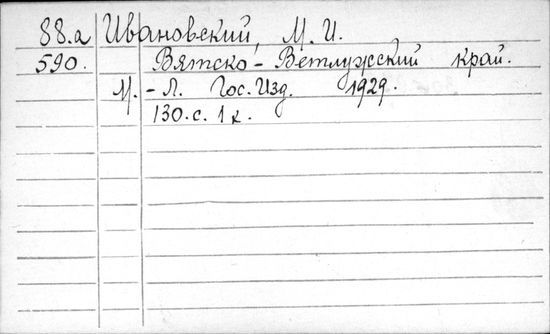 88.а Ивановский, М. И.
590. Вятско-Ветлужский край.
М. - Л. Гос. Изд. 1929.
130.с. 1 к.